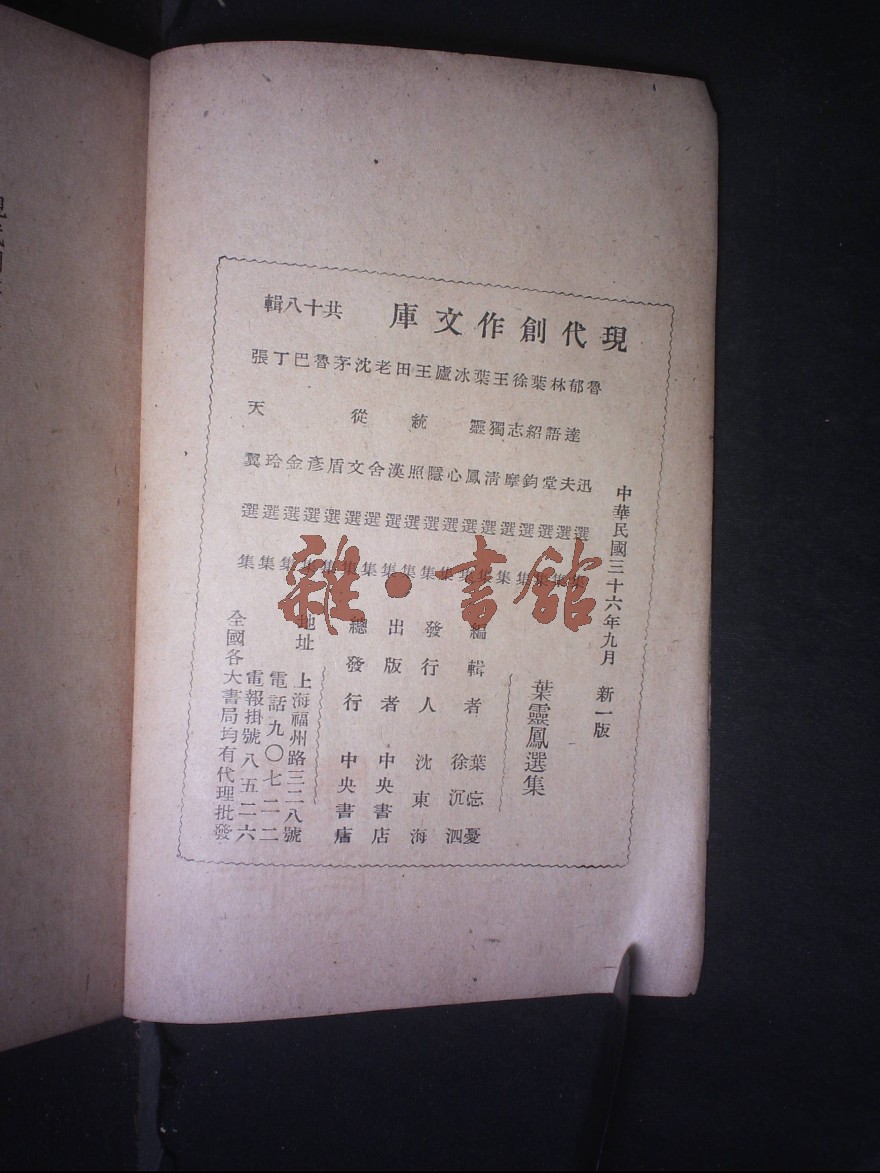 現代創作文庫 共十八輯
魯迅選集
郁達夫選集
林語堂選集
葉紹鈞選集
徐志摩選集
王獨清選集
葉靈鳳選集
冰心選集
廬隱選集
王統照選集
田漢選集
老舍選集
沈從文選集
茅盾選集
魯彥選集
巴金選集
丁玲選集
張天翼選集
中華民國三十六年九月 新一版
葉靈鳳選集
編輯者 葉忘憂
徐沉泗
發行人 沈東海
出版者 中央書店
總發行 中央書店
地址 上海福州路三二八號
電話九〇七二二
電報掛號八五二六
全國各大書局均有代理批發
雜·書館